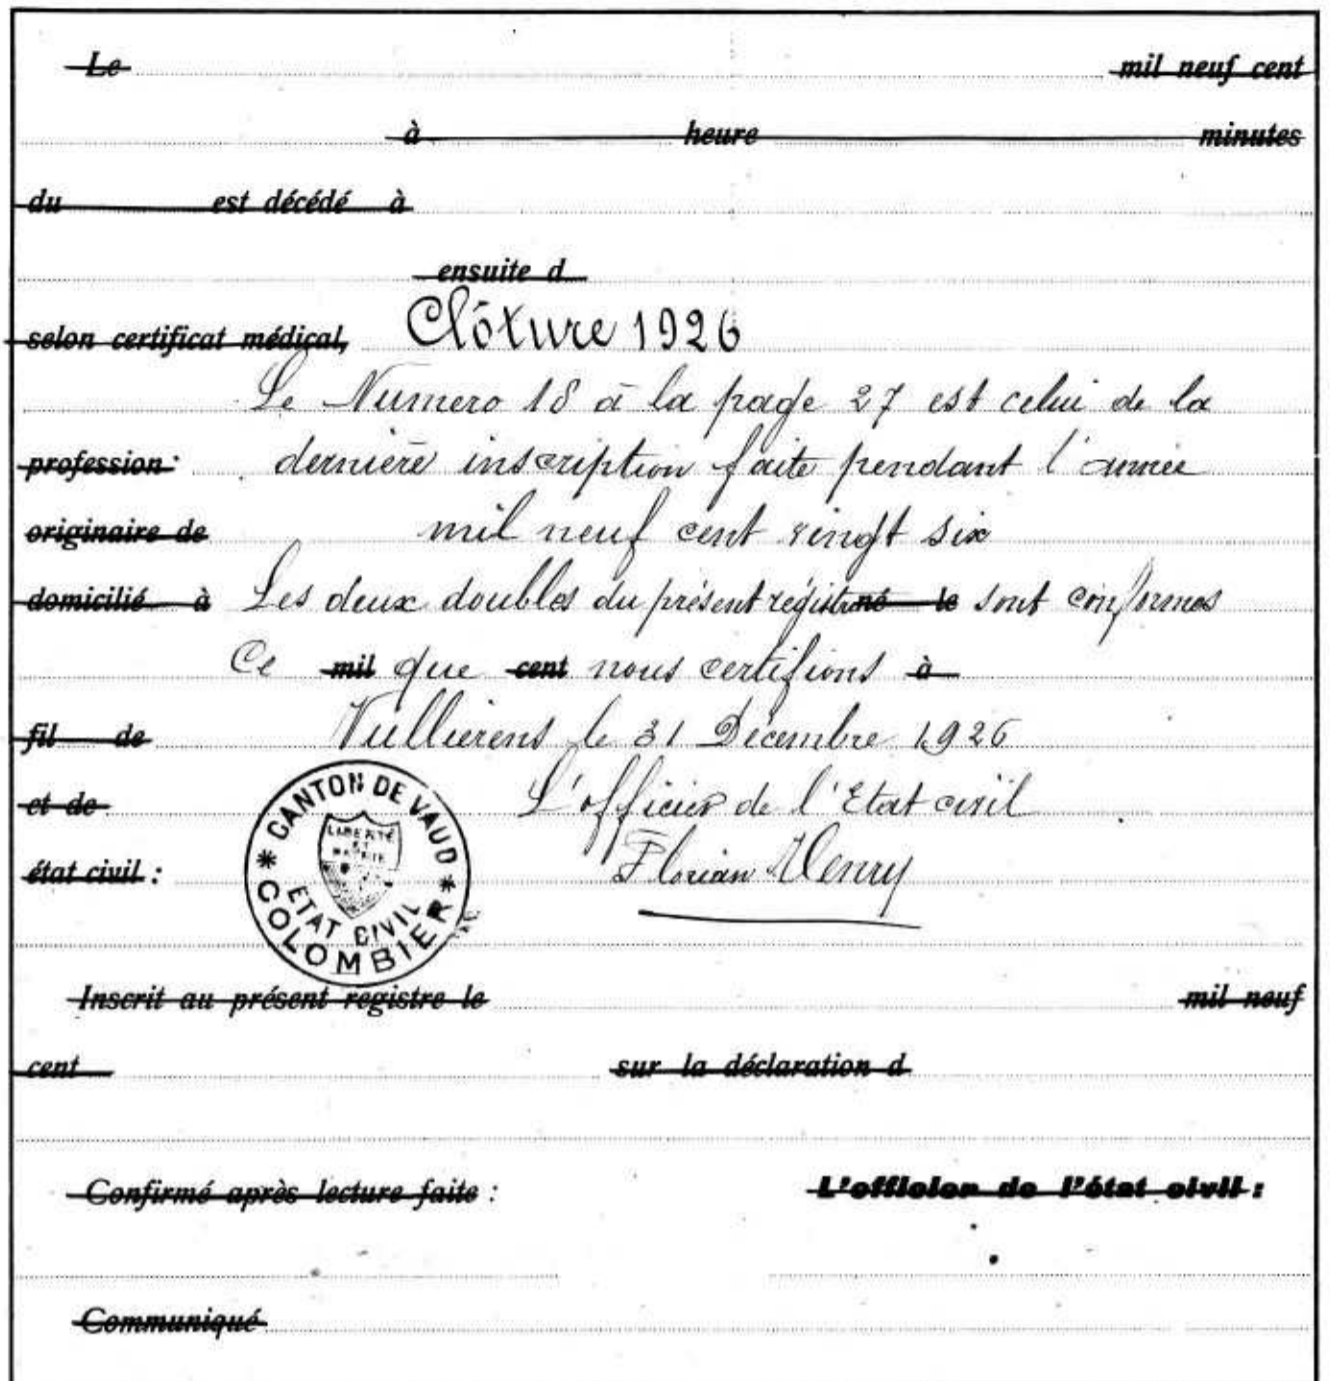 Le mil neuf cent
à heure minutes
du est décédé à
ensuite d
selon certificat médical, Clôture 1926
Le Numero 18 à la page 27 est celui de la
profession: dernière inscription faite pendant l'année
originaire de mil neuf cent vingt six
domicilié à Les deux doubles du présent régistre né le sont conformes
Ce mil que cent nous certifions à
fil de Vullierens le 31 Décembre 1926
et de L'officier de l'Etat civil
état civil : Florian Henry
CANTON DE VAUD
LIBERTÉ
ET
PATRIE
ETAT CIVIL
COLOMBIER
Inscrit au présent registre le mil neuf
cent sur la déclaration d
Confirmé après lecture faite : L'officier de l'état civil :
Communiqué